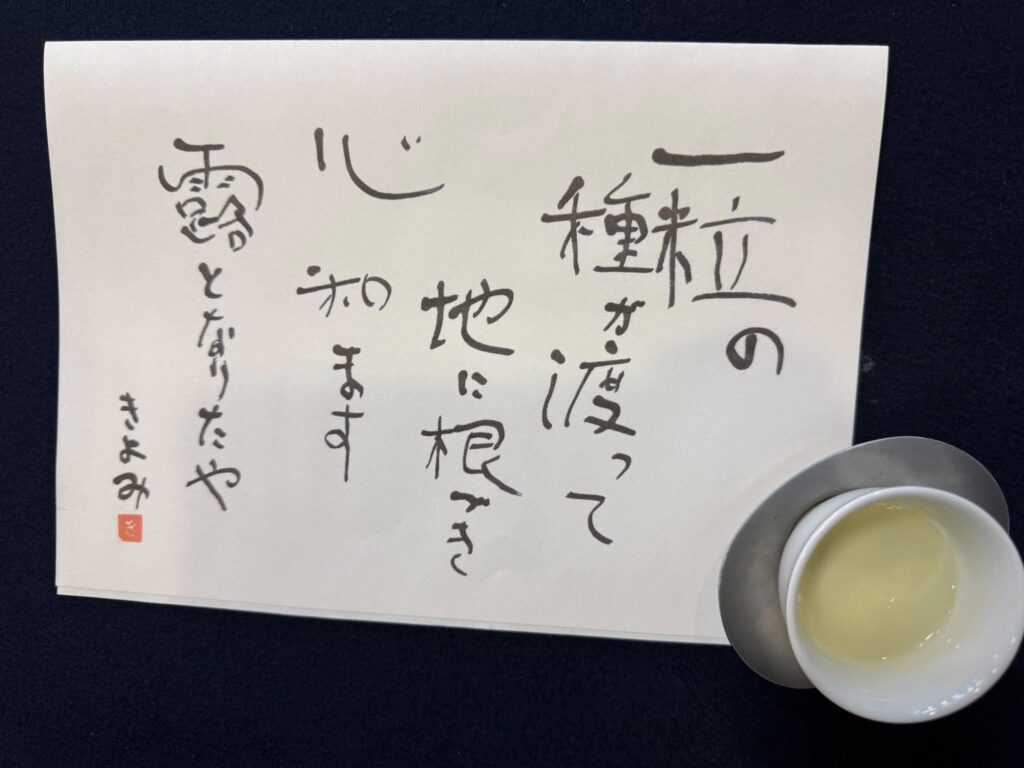 一粒の
種が渡って
地に根づき
心
和ます
露となりたや
きよみ
き